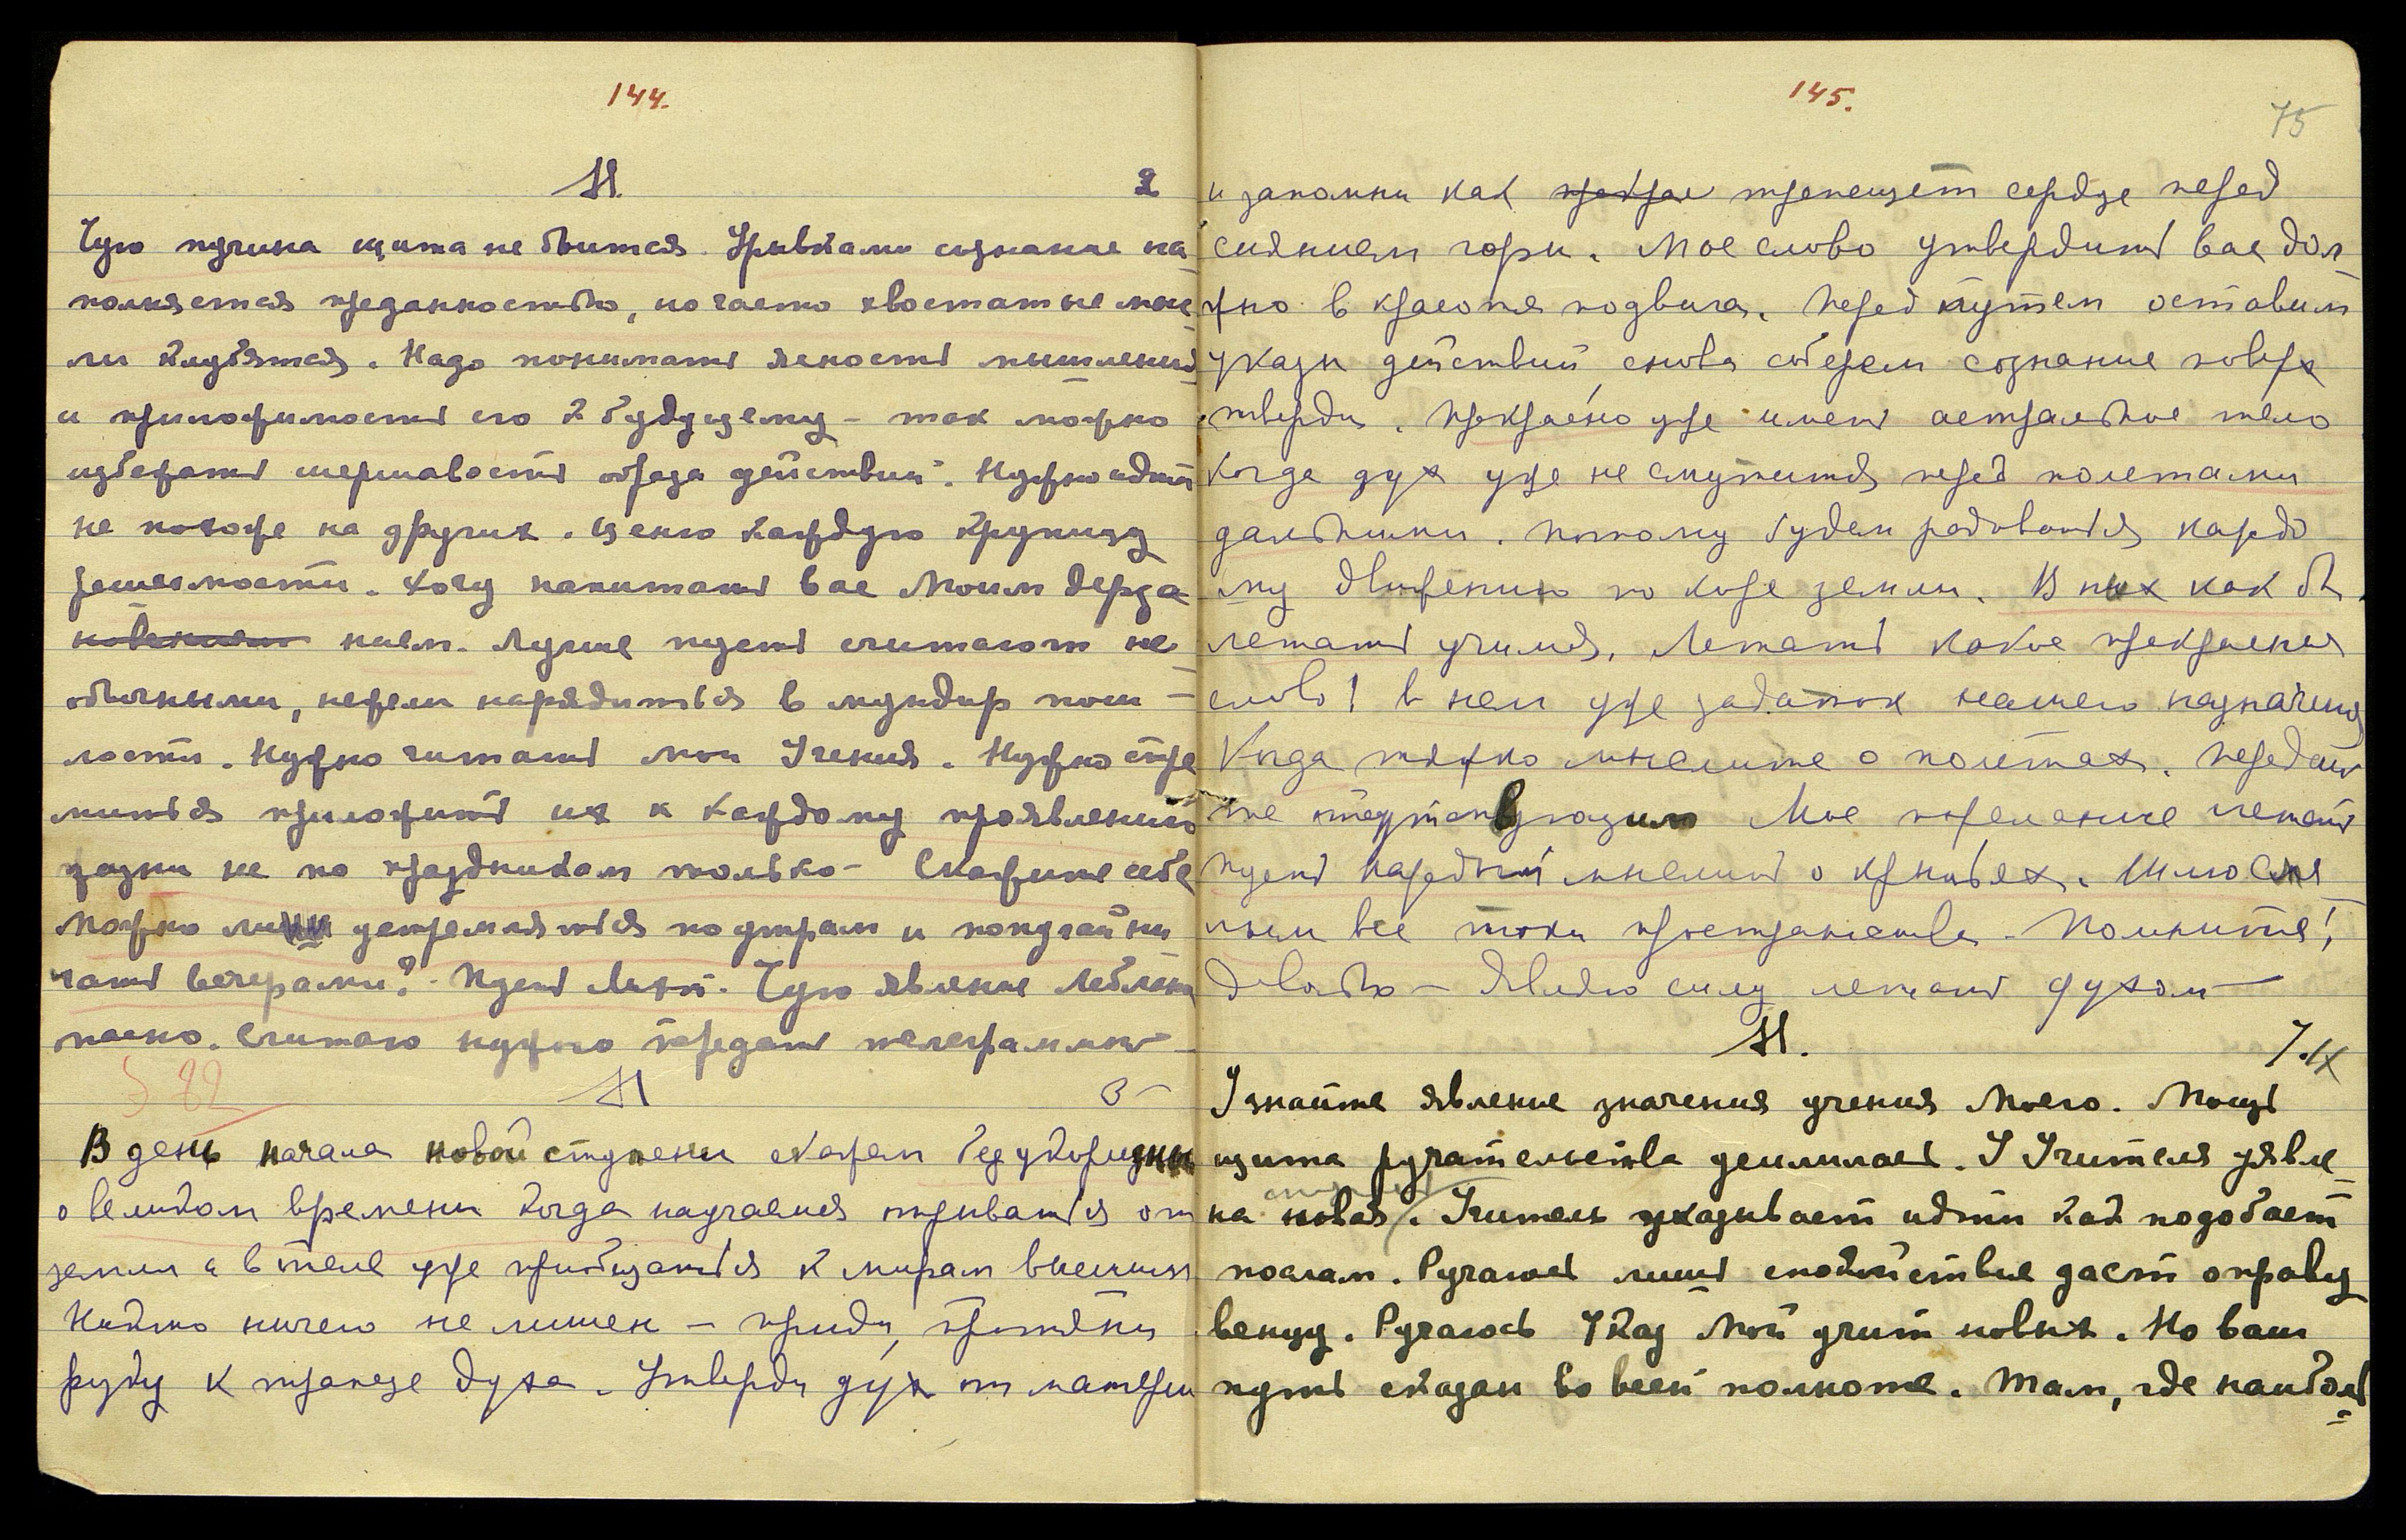 144.
М. 2
Чую пучина щита не бьится. Урывками сознание на
полняется преданностью, но часто хвостатые мыс
ли клубятся. Надо понимать ясность мышления
и приложимость его к будущему – так можно
избежать шершавости образа действий. Нужно идти
не похоже на других. Ценю каждую крупицу
решимости. Хочу напитать вас Моим дерза
нием. Лучше пусть считают не
обычными, нежели нарядиться в мундир пош –
лости. Нужно читать мои Учения. Нужно стре
миться приложить их к каждому проявлению
жизни не по праздникам только – Скажите себе
можно ли устремляться по утрам и попугайни
чать вечерами? – Пусть Люмоу. Чую явление
пасно. Считаю нужно передать телеграммы –
М 3 –
В день начала новой ступени скажем без укоризны
о великом времени когда научаемся отрываться от
земли и в теле уже приобщаться к мирам высшим
Никто ничего не лишен – приди, протяни
руку к трапезе духа. Утверди дух от материи
145.
75
и запомни как трепещет сердце перед
сиянием горы. Мое слово утвердить вас дол
жно в красоте подвига. Перед путем оставим
указы действий, снова соберем сознание поверх
тверди. Прекрасно уже имея астральное тело
когда дух уже не смутится перед полетами
дальними. Потому будем радоваться каждо
му движению по коре земли. В них как бы
летать учимся. Летать какое прекрасное
слово! В нем уже задаток нашего назначения
Когда тяжко мыслите о полетах. Передайте
Мое повеление летать
пусть каждый мыслит о крыльях. Шлю
все токи пространства – Помните!
довольно – Являю силу летать духом –
М. 7.IX
Узнайте явление значения учения Моего. Мощь
щита ручательства усилилась. У Учителя уявле
на новая. Учитель указывает идти как подобает
послам. Ручаюсь лишь спокойствие даст оправу
венцу. Ручаюсь Указ Мой учит новых. Но ваш
путь сказан во всей полноте. Там, где наиболь